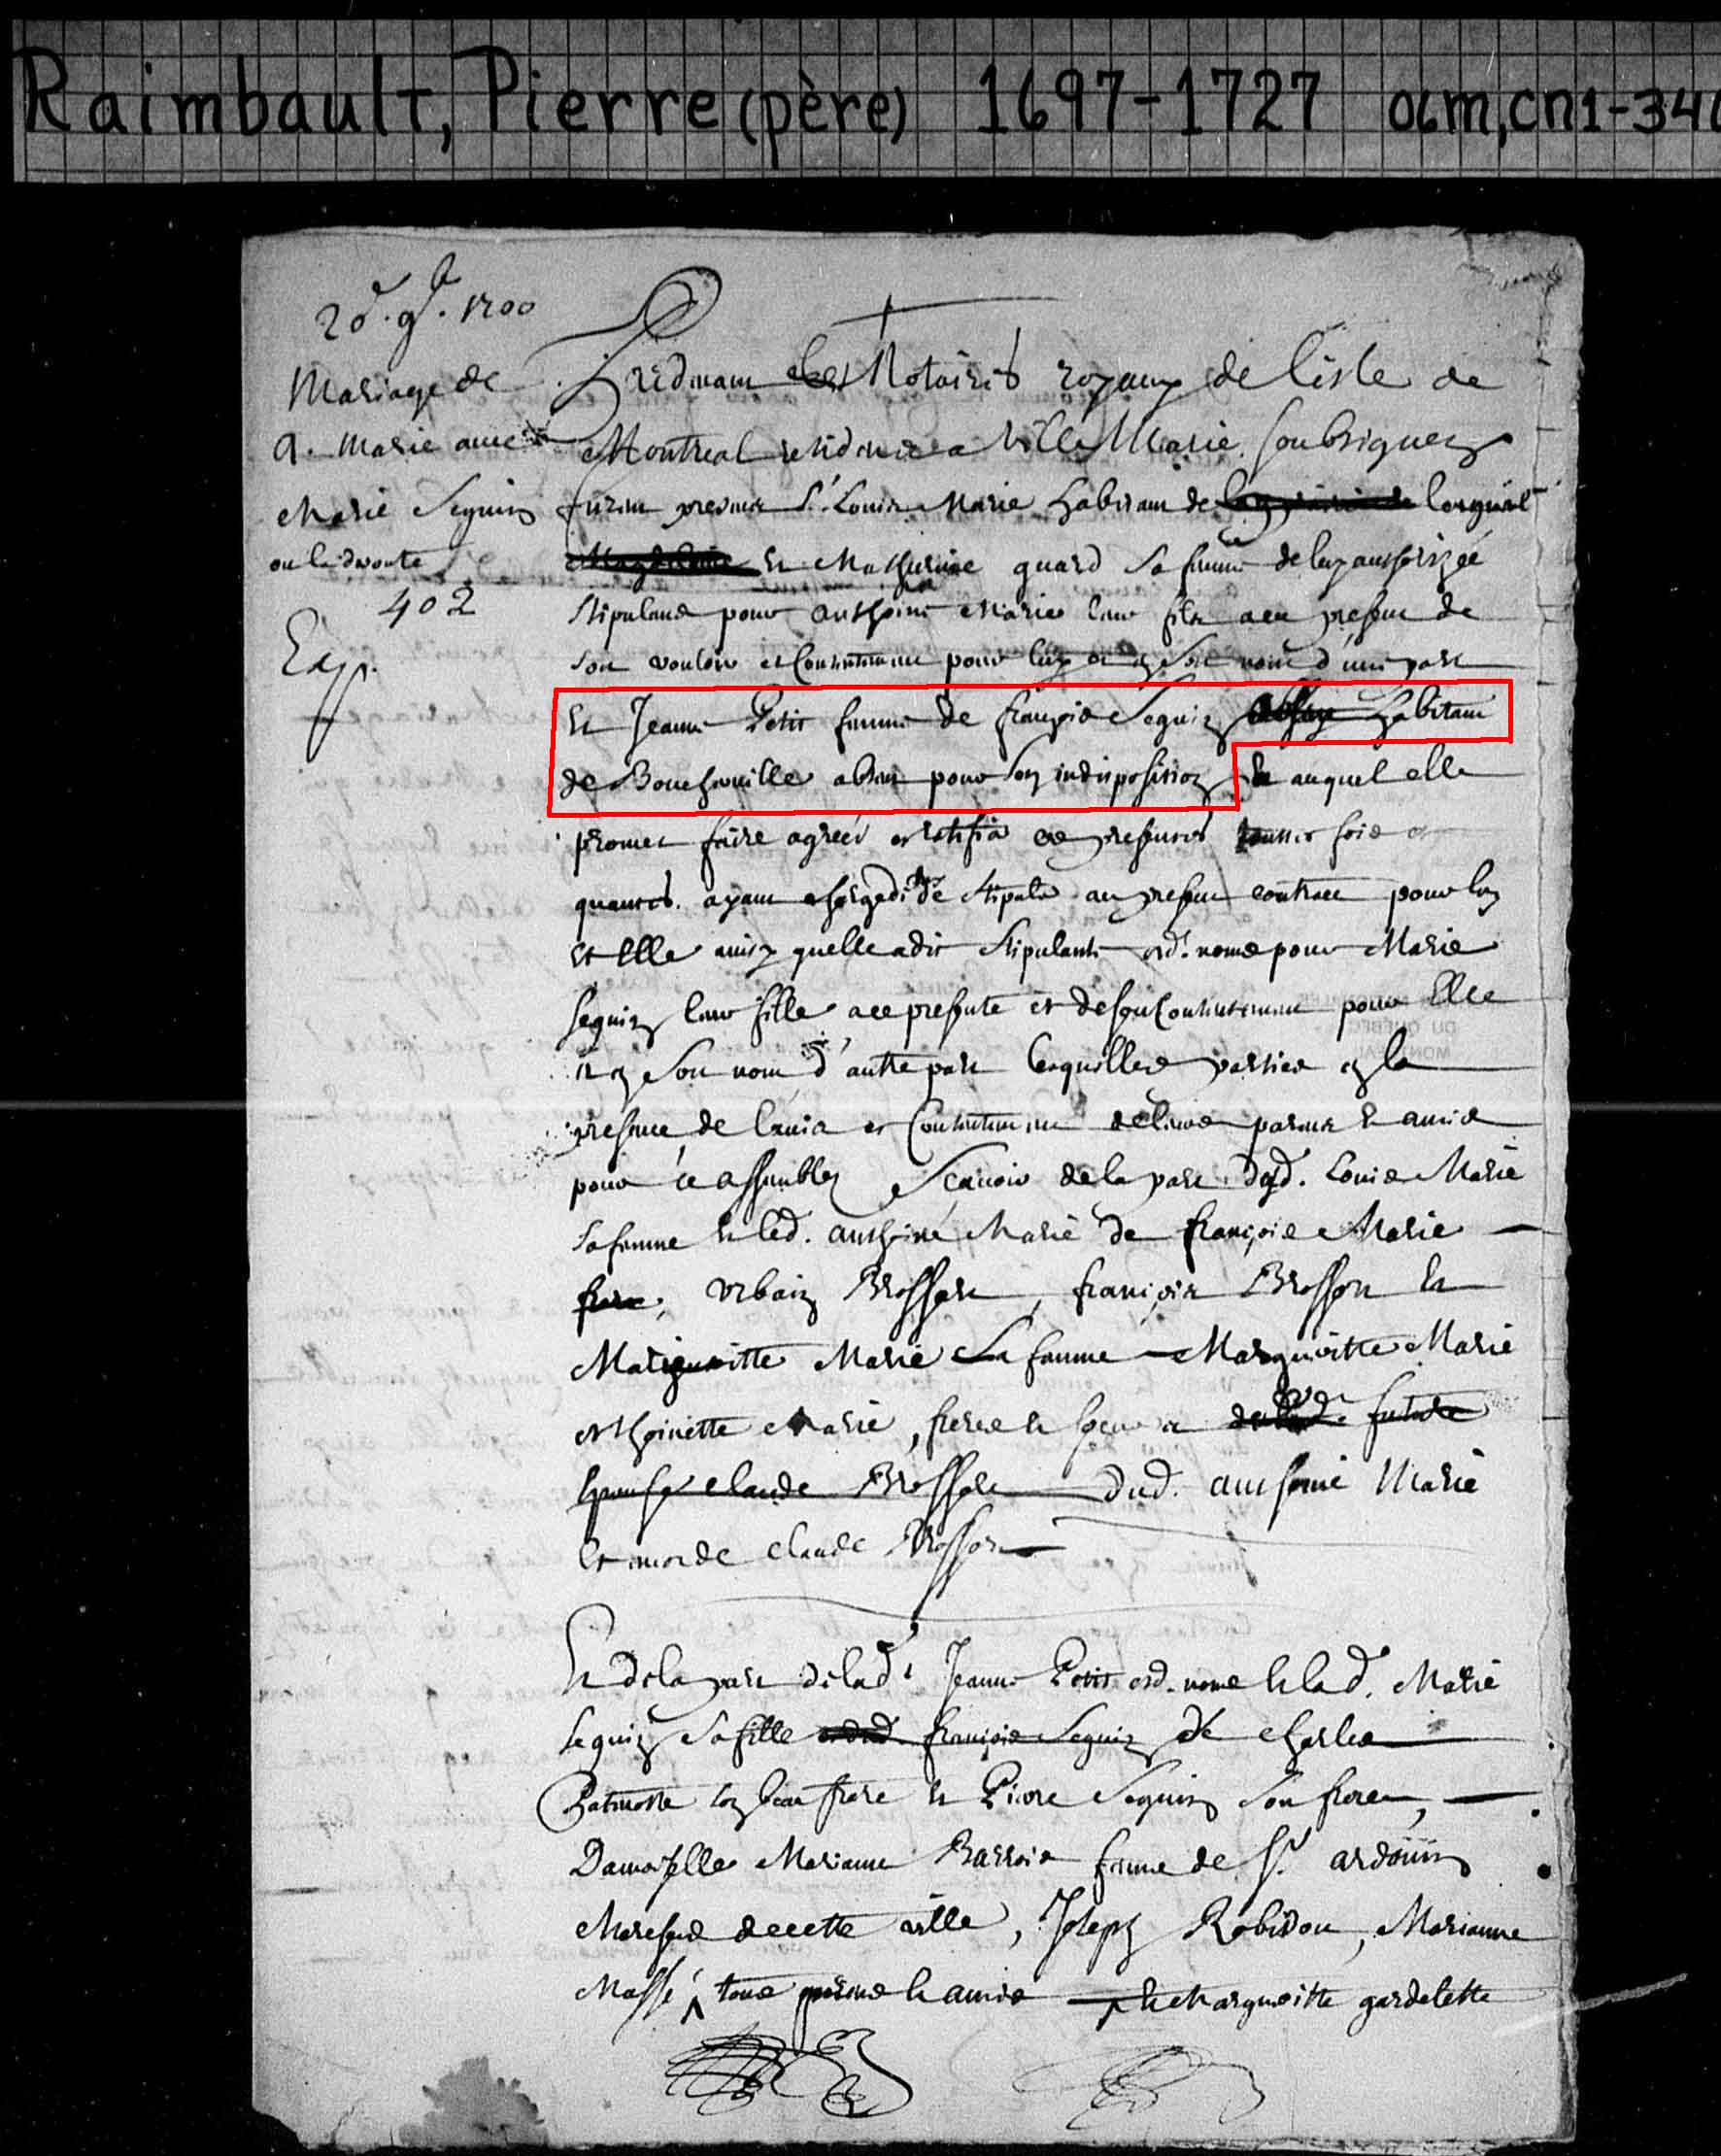 Raimbault, Pierre (père) 1697-1727 06m,cn1-340
20e. 9b. 1700
Mariage de
A. Marie avec
Marie Seguin
ou le dvoute
402
Exp.
Pardevant les Notaires royaux de lisle de
Montreal residans a Ville Marie soubsignez
furent presens Sr. Louis Marie habitant de longueil
Et Mathurine goard sa femme de luy authorizée
stipulans pour anthoine Marie leur fils a ce present de
son vouloir et Consentement pour luy et en son nom d'une part
Et Jeanne Petit femme de françois Seguin habitant
de Boucherville absent pour son indisposition auquel elle
promet faire agreer et ratifier ces presentes touttes fois et
quantes. ayant charge dit de stipuler au present contract pour luy
et Elle ainsy quelle a dit stipulante esd. noms pour Marie
Seguin leur fille a ce presente et de son Consentement pour Elle
et en son nom d'autre part lesquelles parties en la
presence de lavis et Consentement de leurs parens et amis
pour ce assemblez Scavoir de la part dud. Louis Marie
sa femme et led. anthoine Marie de françois Marie
frere, Urbain Brossard, françois Brossard et
Marguerite Marie sa femme Marguerite Marie
Anthoinette Marie, freres et soeurs future
Epouse Claude Brossard Dud. anthoine Marie
Et encor de Claude Brossard
Et de la part de lad. Jeanne Petit esd. noms et lad. Marie
Seguin sa fille françois Seguin de Charles
Patenostre son beau frere et Pierre Seguin son frere,
Damoiselle Marianne Barrois femme de Sr. ardouin
Marchand de cette ville, Joseph Robidou, Marianne
Massé, tous parens et amis et Marguerite gardelette